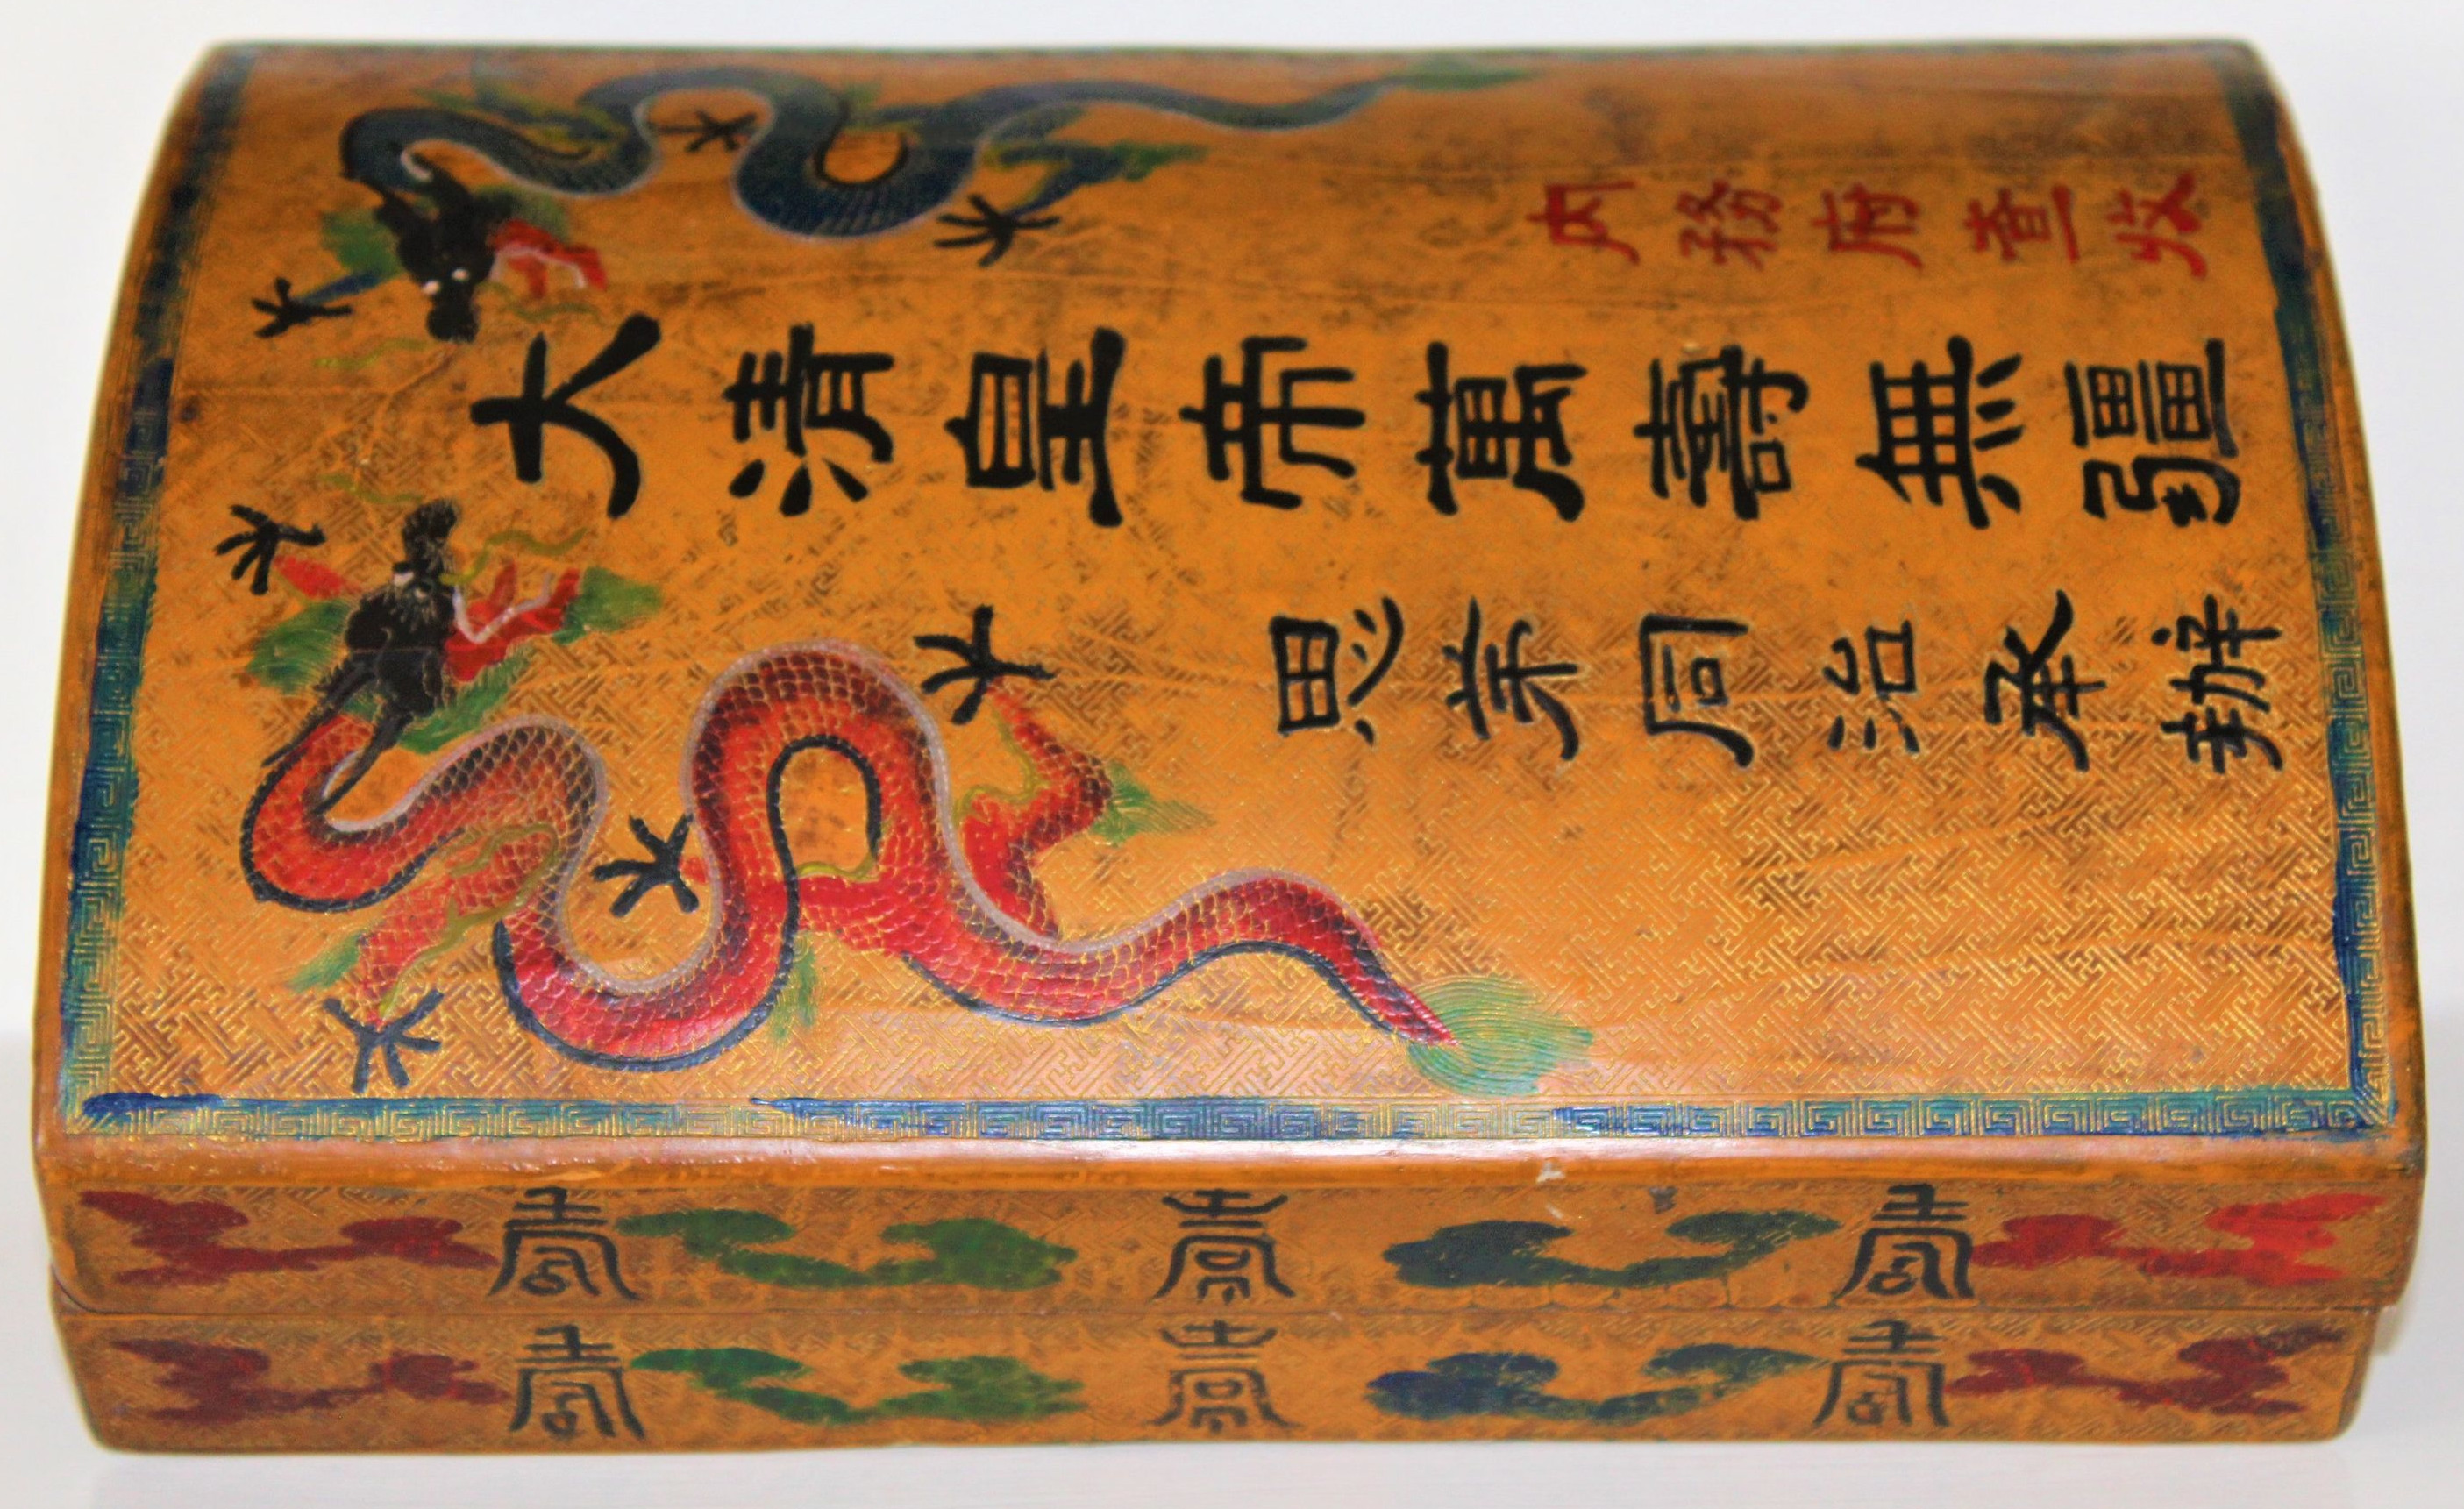 內務府查收
大清皇帝萬壽無疆
思 同治承辦
壽 壽 壽
壽 壽 壽